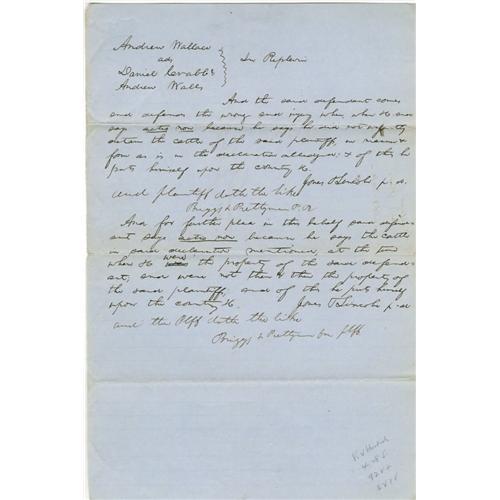 Andrew Wallace
ads
Daniel Crabb &
Andrew Walls
In Replevin
And the said defendant comes
and defends the wrong and injury when, where &c and
say actio non because he says he did not unjustly
detain the cattle of the said plaintiff, in manner &
form as is in the declaration alledged; & of this he
puts himself upon the country &c.
Jones & Lincoln p. d.
And plaintiff doth the like
Briggs & Prettyman P. Q
And for further plea in this behalf said defend-
ant says actio non because he say the cattle
in said declaration mentioned at the time
when &c were the property of the said defend-
ant, and were not then & there the property of
the said plaintiff, and of this he puts himself
upon the country &c.
Jones & Lincoln p. d
and the Plff doth the like
Briggs & Prettyman for plff